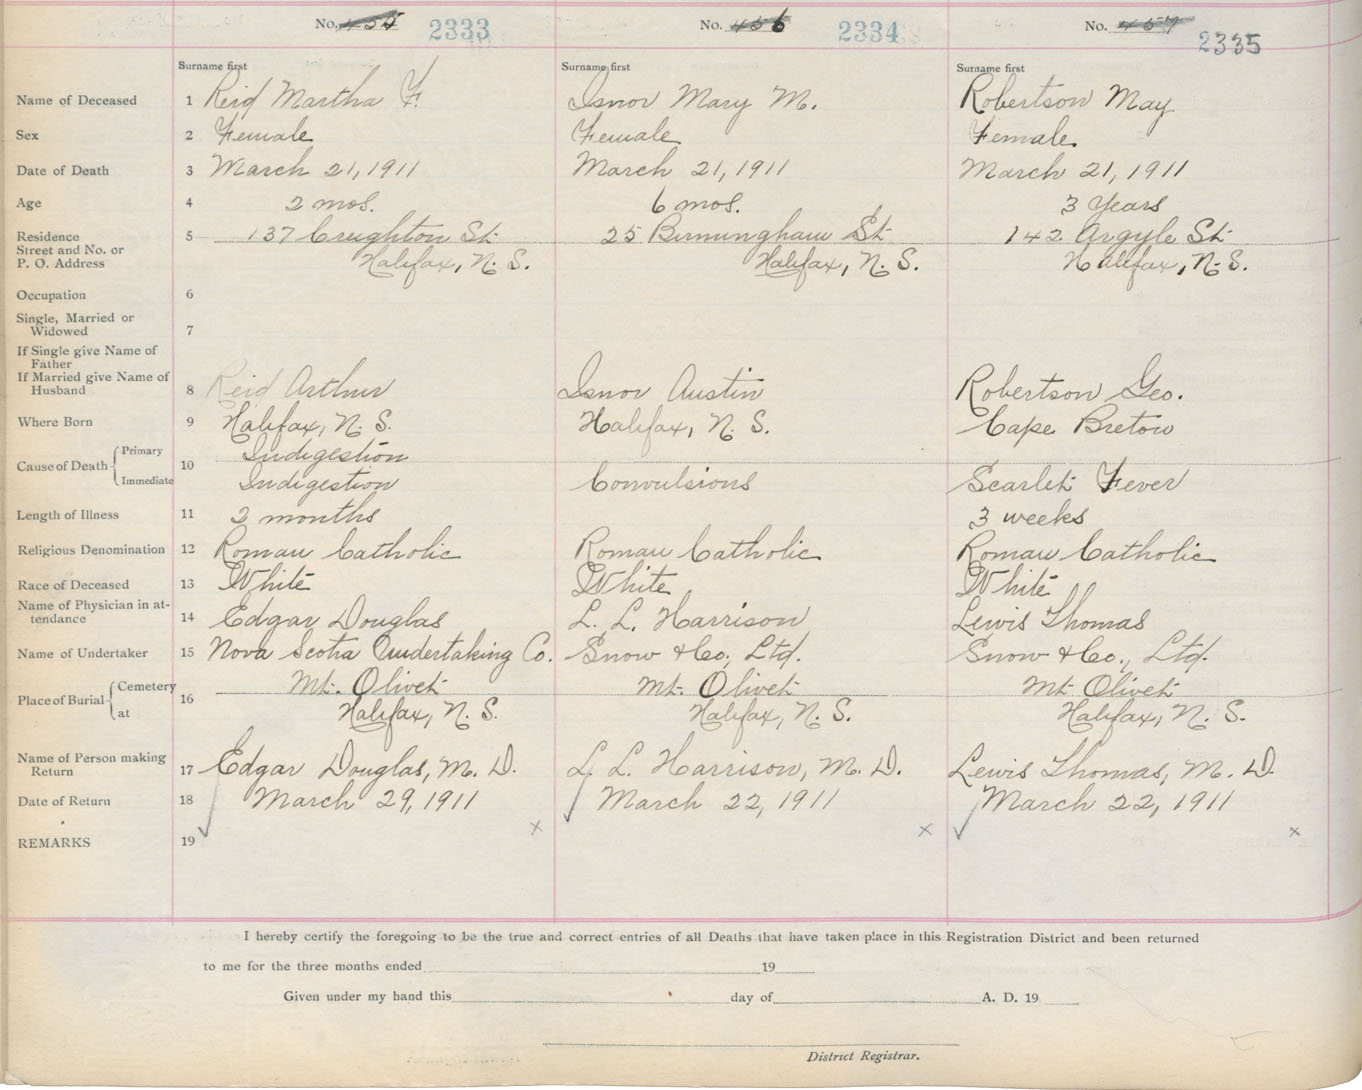 No. 455 2333 No. 456 2334 No. 457 2335
Surname first Surname first Surname first
Name of Deceased 1 Reid Martha F. Isnor Mary M. Robertson May
Sex 2 Female Female Female.
Date of Death 3 March 21, 1911 March 21, 1911 March 21, 1911
Age 4 2 mos. 6 mos. 3 Years
Residence 5 137 Creighton St. 25 Birmingham St. 142 Argyle St.
Street and No. or
P. O. Address Halifax, N. S. Halifax, N. S. Halifax, N. S.
Occupation 6
Single, Married or
Widowed 7
If Single give Name of
Father
If Married give Name of
Husband 8 Reid Arthur Isnor Austin Robertson Geo.
Where Born 9 Halifax, N. S. Halifax, N. S. Cape Breton
Cause of Death Primary 10 Indigestion
Immediate Indigestion Convulsions Scarlet Fever
Length of Illness 11 2 months 3 weeks
Religious Denomination 12 Roman Catholic Roman Catholic Roman Catholic
Race of Deceased 13 White White White
Name of Physician in at-
tendance 14 Edgar Douglas L. L. Harrison Lewis Thomas
Name of Undertaker 15 Nova Scotia Undertaking Co. Snow & Co., Ltd. Snow & Co., Ltd.
Place of Burial Cemetery 16 Mt. Olivet Mt. Olivet Mt. Olivet
at Halifax, N. S. Halifax, N. S. Halifax, N. S.
Name of Person making
Return 17 Edgar Douglas, M. D. L. L. Harrison, M. D. Lewis Thomas, M. D.
Date of Return 18 March 29, 1911 March 22, 1911 March 22, 1911
REMARKS 19 x x x
I hereby certify the foregoing to be the true and correct entries of all Deaths that have taken place in this Registration District and been returned
to me for the three months ended 19
Given under my hand this day of A. D. 19
District Registrar.